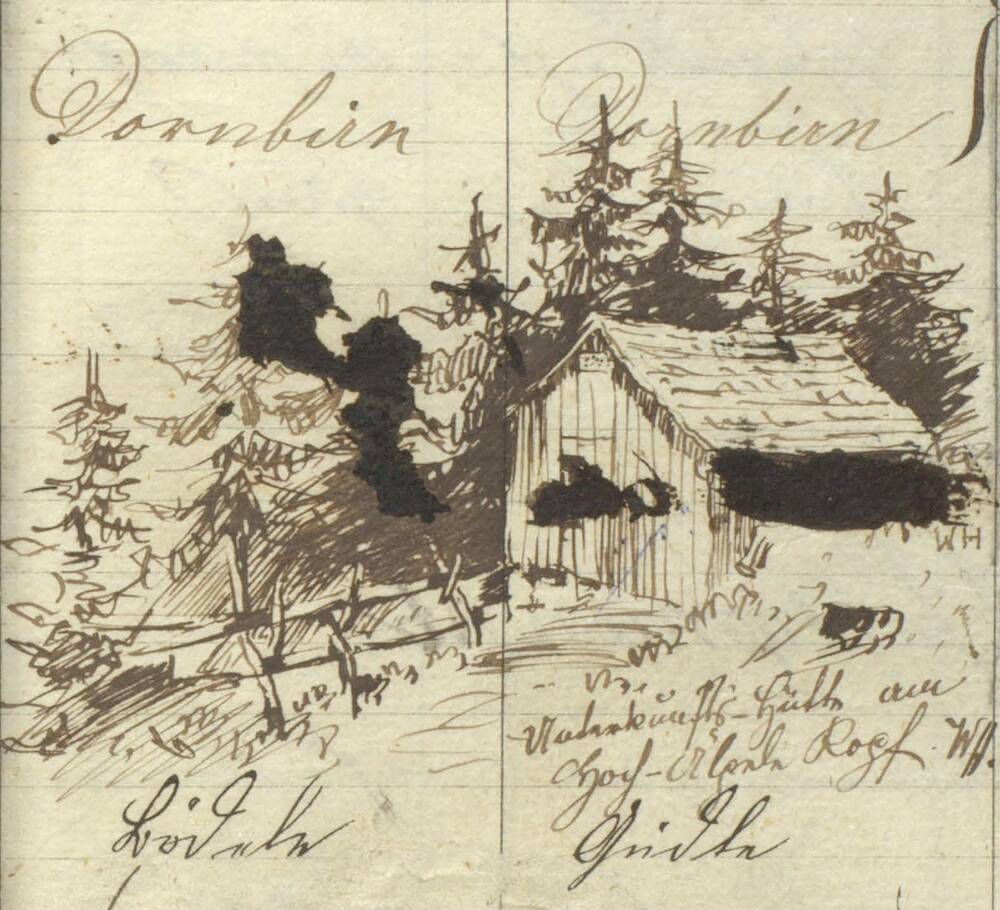 Dornbirn Dornbirn
WH
Unterkunfts-Hütte am
Hoch-Älpele Kopf. WH.
Bödele Gütle